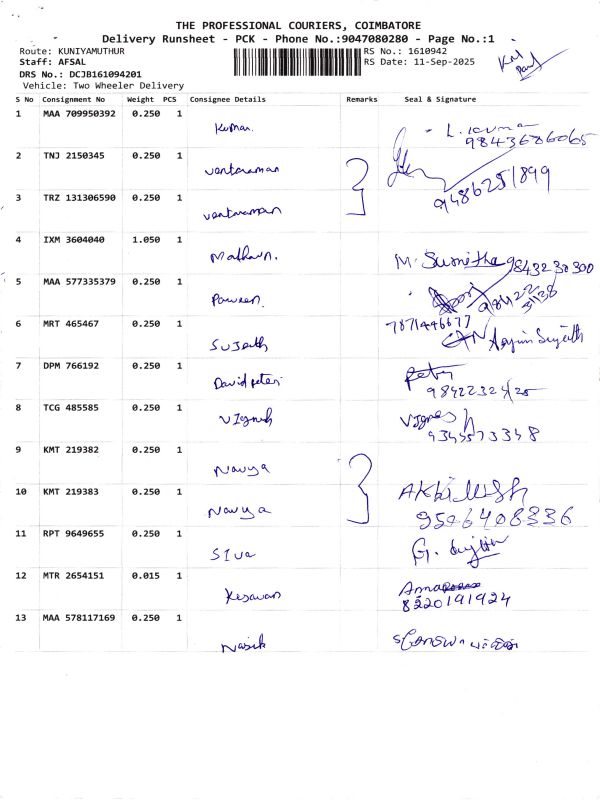 THE PROFESSIONAL COURIERS, COIMBATORE
Delivery Runsheet - PCK - Phone No.:9047080280 - Page No.:1
Route: KUNIYAMUTHUR RS No.: 1610942
Staff: AFSAL RS Date: 11-Sep-2025
DRS No.: DCJB161094201
Vehicle: Two Wheeler Delivery
S No Consignment No Weight PCS Consignee Details Remarks Seal & Signature
1 MAA 709950392 0.250 1
Kumar. L.
2 TNJ 2150345 0.250 1
3 TRZ 131306590 0.250 1
9486251899
4 IXM 3604040 1.050 1
M. Sumitha 9843230300
5 MAA 577335379 0.250 1
Praveen.
6 MRT 465467 0.250 1
7871446677
Sujeeth
7 DPM 766192 0.250 1
David peter
8 TCG 485585 0.250 1
Vignesh
9 KMT 219382 0.250 1
Navya
10 KMT 219383 0.250 1
Navya 9506408336
11 RPT 9649655 0.250 1
Siva G.
12 MTR 2654151 0.015 1
Kesavan 8220191924
13 MAA 578117169 0.250 1
Nasik